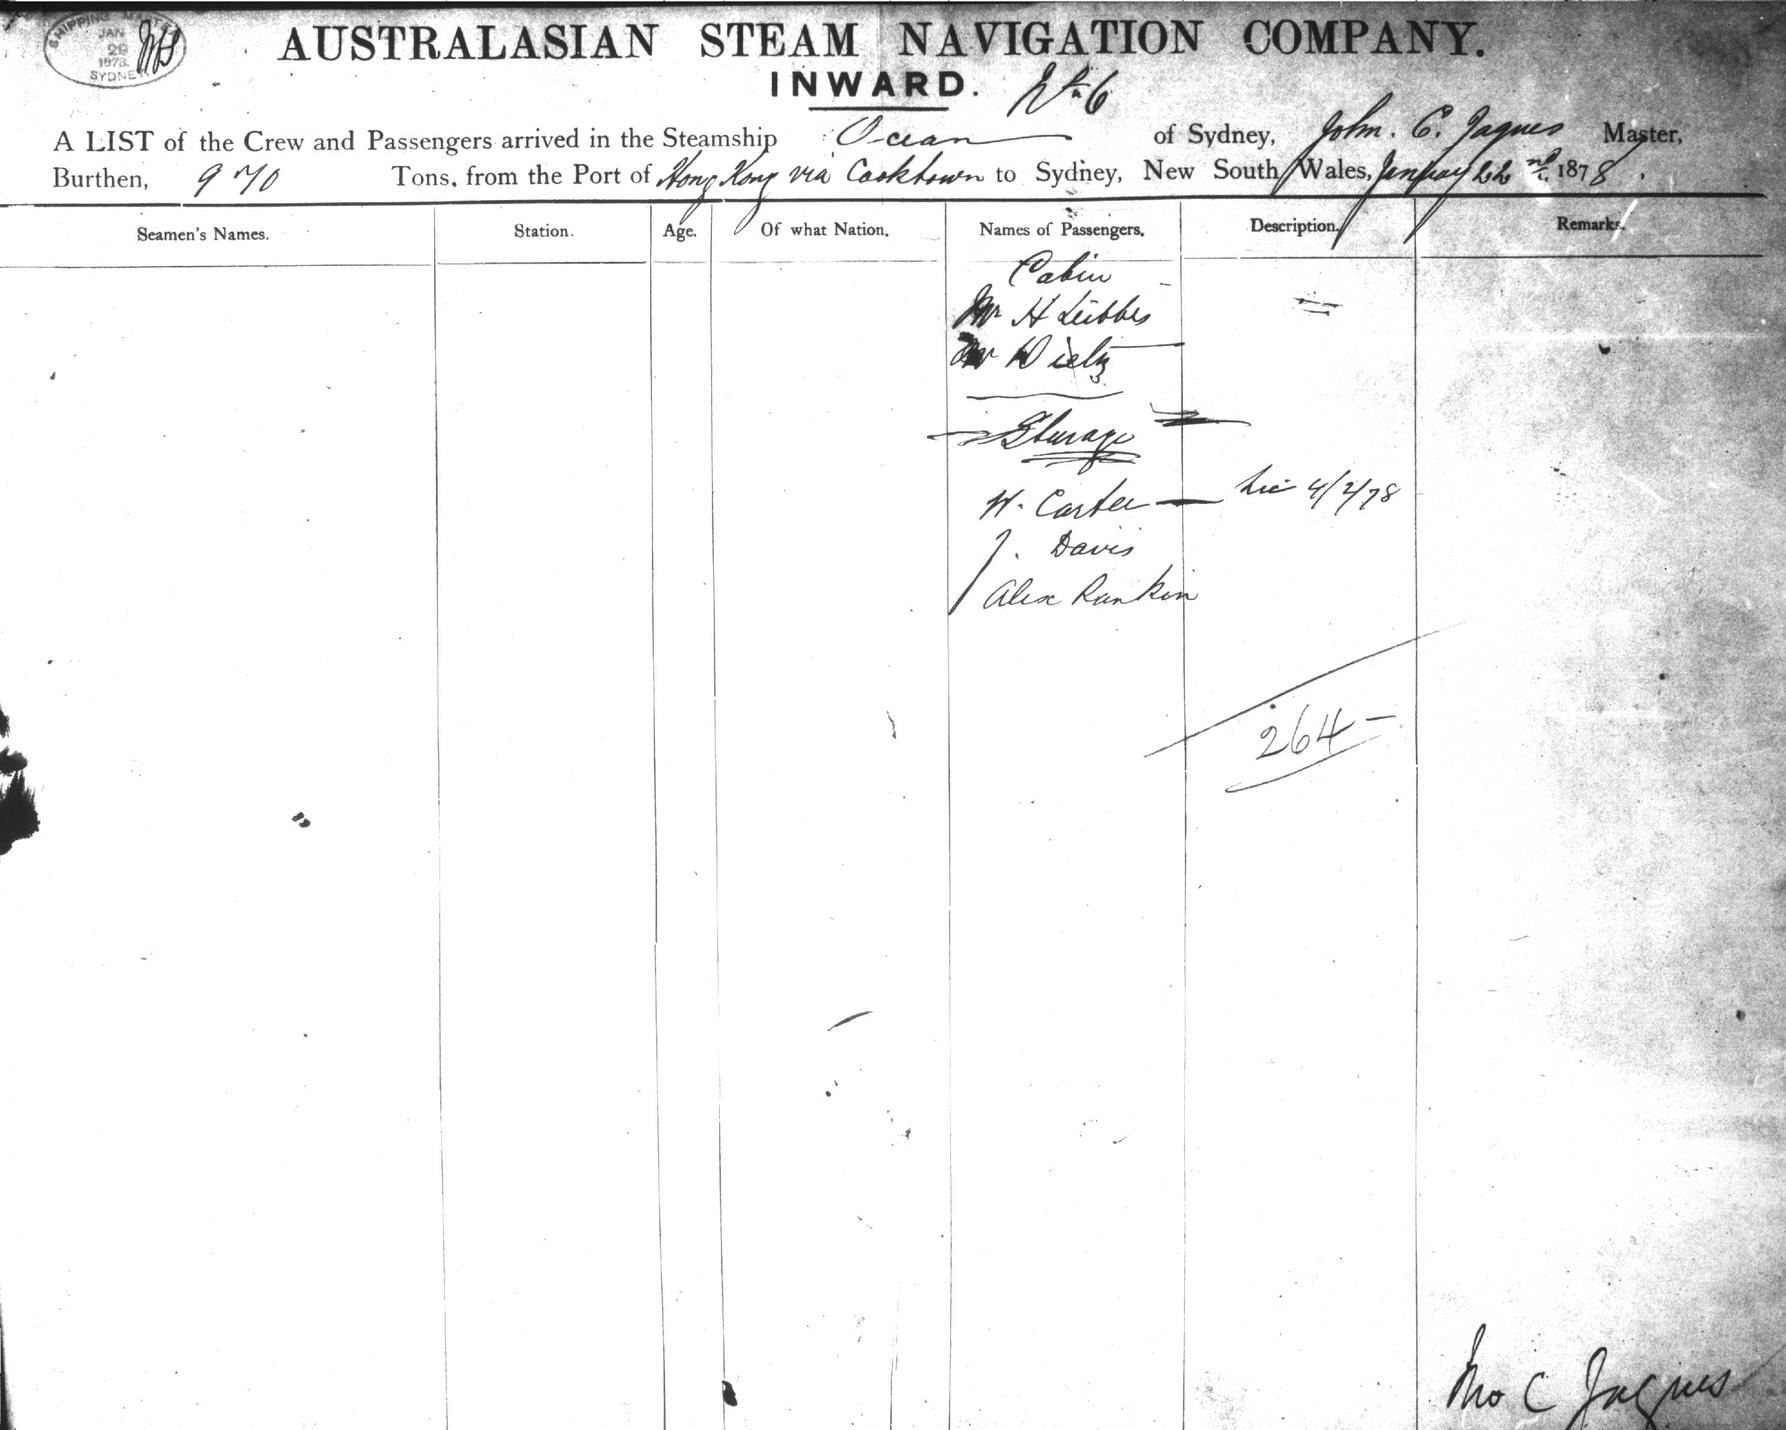 SHIPPING MASTER
JAN
29
1878.
SYDNEY
AUSTRALASIAN STEAM NAVIGATION COMPANY.
INWARD.
A LIST of the Crew and Passengers arrived in the Steamship Ocean of Sydney, John. C. Jaques Master,
Burthen, 970 Tons, from the Port of Hong Kong via Cooktown to Sydney, New South Wales, January 22nd 1878.
Seamen's Names. Station. Age. Of what Nation. Names of Passengers. Description. Remarks.
Cabin
Mr H Lübbes
Steerage
W. Carter 4/2/78
J. Davis
Alex Rankin
264
Jno C Jaques